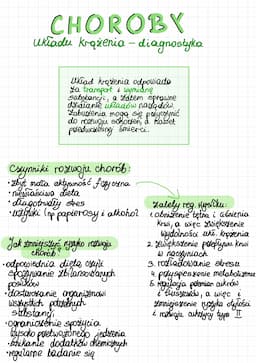 CHOROBY
układu krążenia - diagnostyka
Układ krążenia odpowiada
za transport i wymianę
substancji, a zatem sprawne
działanie układów narządów.
Zaburzenia mogą się przyczynić
do rozwoju schorzeń, a nawet
przedwczesnej śmierci.
Czynniki rozwoju chorób:
• zbyt mała aktywność fizyczna
• niewłaściwa dieta
• długotrwały stres
• używki (np papierosy i alkohol)
Jak zmniejszyć ryzyko rozwoju
chorób:
• odpowiednia dieta, czyli
spożywanie zbilansowanych
posiłków
• dostarczanie organizmowi
wszystkich potrzebnych
substancji
• ograniczenie spożycia
wysoko przetworzonego jedzenia
• unikanie dodatków chemicznych
• regularne badanie się
Zalety reg. wysiłku:
1. obniżenie tętna i ciśnienia
krwi, a więc zwiększenie
wydolności ukł. krążenia
2. zwiększenie przepływu krwi
w naczyniach
3. rozładowanie stresu
4. przyspieszenie metabolizmu
5. regulacja poziomu cukrów
i tłuszczów, a więc
zmniejszenie ryzyka otyłości
i rozwoju cukrzycy typu II